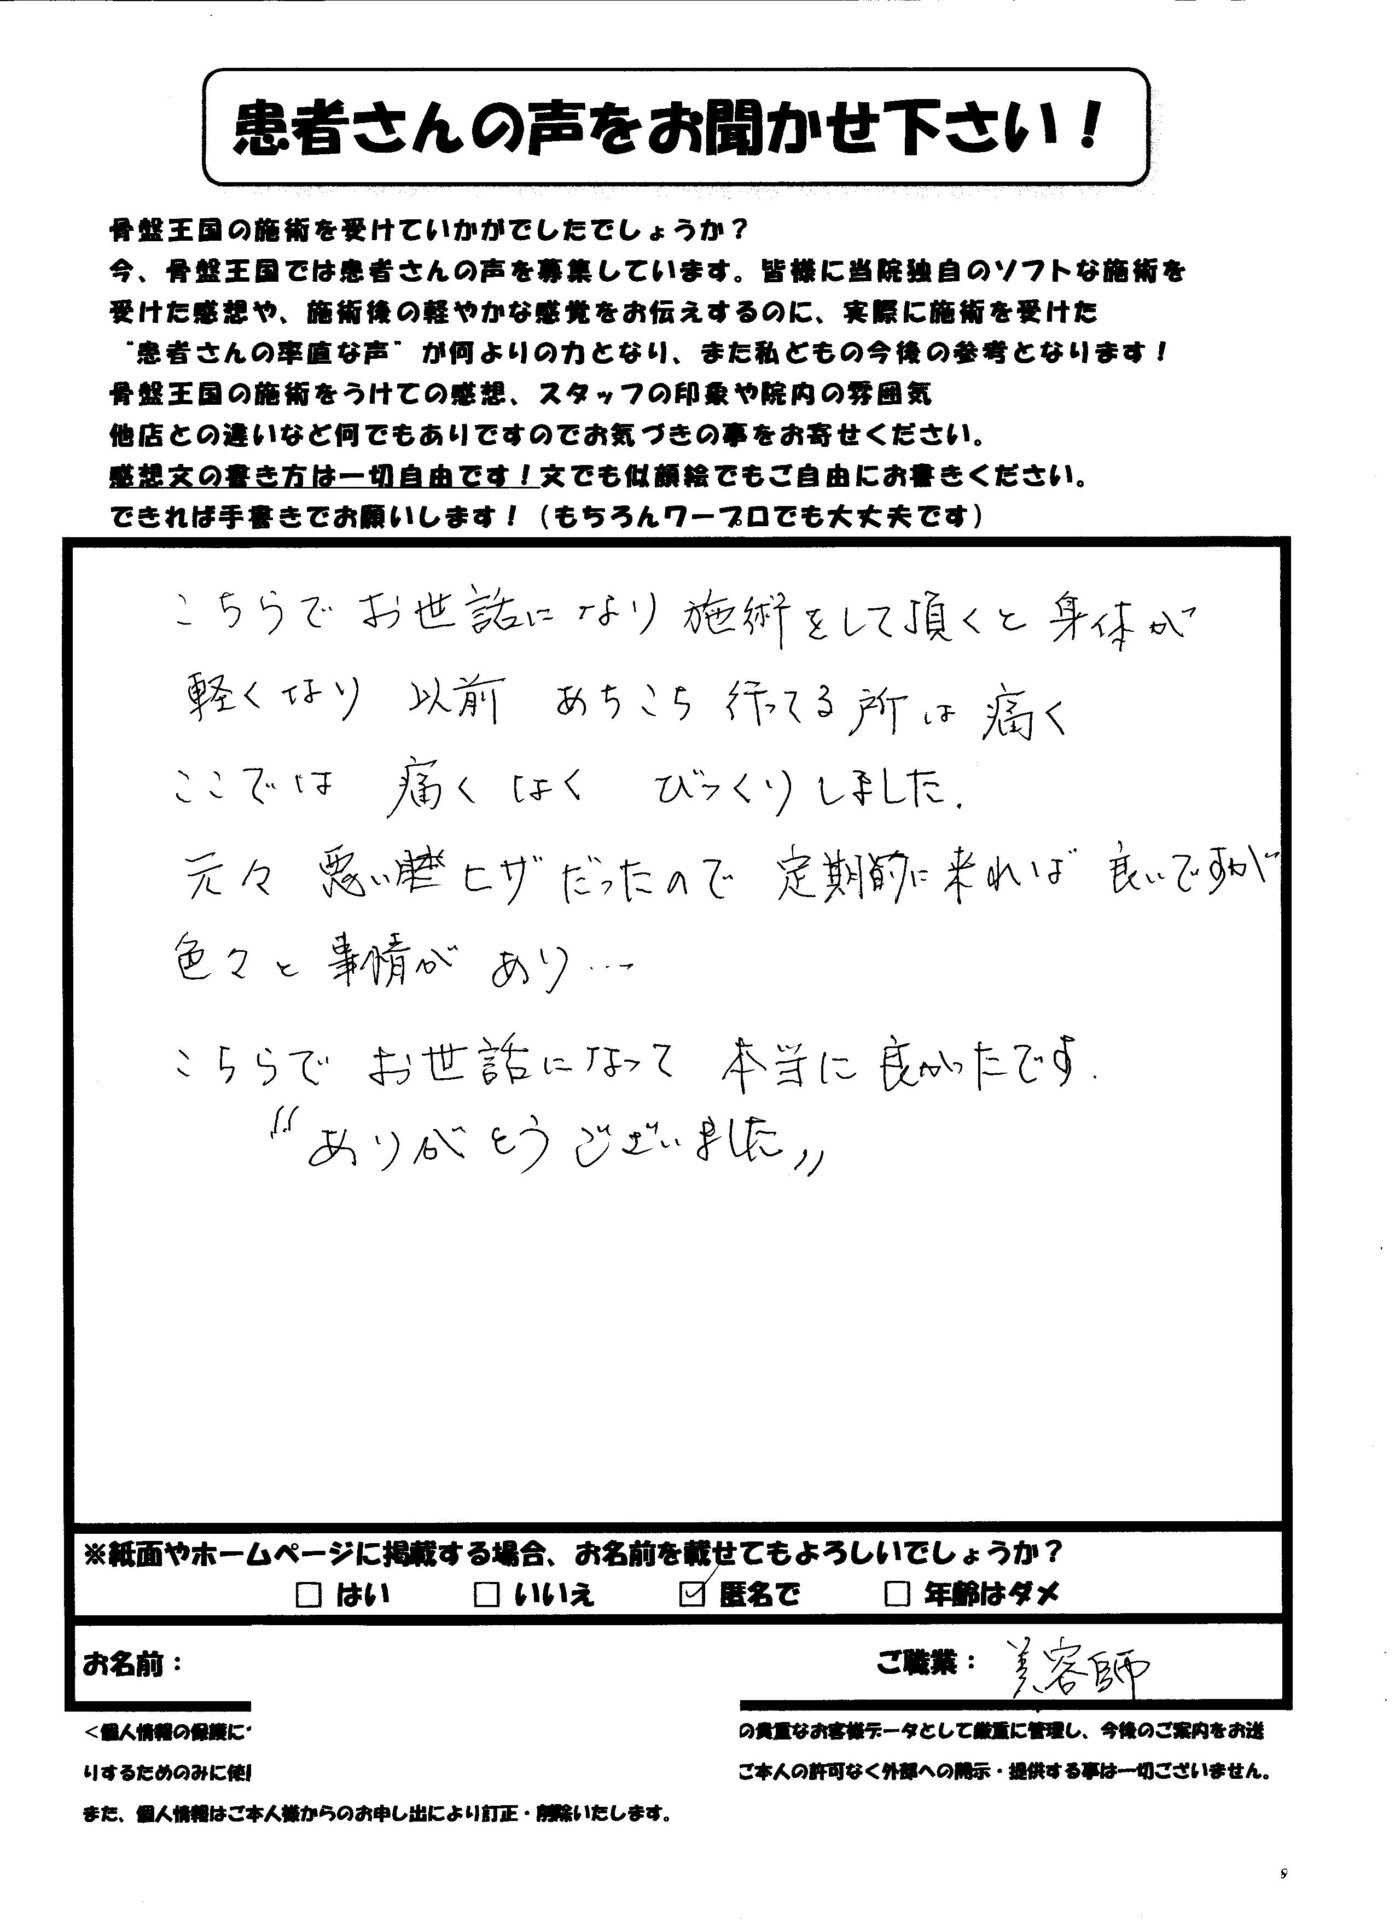 患者さんの声をお聞かせ下さい！
骨盤王国の施術を受けていかがでしたでしょうか？
今、骨盤王国では患者さんの声を募集しています。皆様に当院独自のソフトな施術を
受けた感想や、施術後の軽やかな感覚をお伝えするのに、実際に施術を受けた
“患者さんの率直な声”が何よりの力となり、また私どもの今後の参考となります！
骨盤王国の施術をうけての感想、スタッフの印象や院内の雰囲気
他店との違いなど何でもありですのでお気づきの事をお寄せください。
感想文の書き方は一切自由です！文でも似顔絵でもご自由にお書きください。
できれば手書きでお願いします！（もちろんワープロでも大丈夫です）
こちらで お世話になり 施術をして頂くと 身体が
軽くなり 以前 あちこち 行ってる所は 痛く
ここでは 痛くはく びっくりしました.
元々 悪い ヒザだったので 定期的に来れば 良いですが
色々と 事情が あり…
こちらで お世話になって 本当に 良かったです.
“ありがとうございました„
※紙面やホームページに掲載する場合、お名前を載せてもよろしいでしょうか？
□ はい □ いいえ ☑ 匿名で □ 年齢はダメ
お名前： ご職業： 美容師
＜個人情報の保護に の貴重なお客様データとして厳重に管理し、今後のご案内をお送
りするためのみに使 ご本人の許可なく外部への開示・提供する事は一切ございません。
また、個人情報はご本人様からのお申し出により訂正・削除いたします。